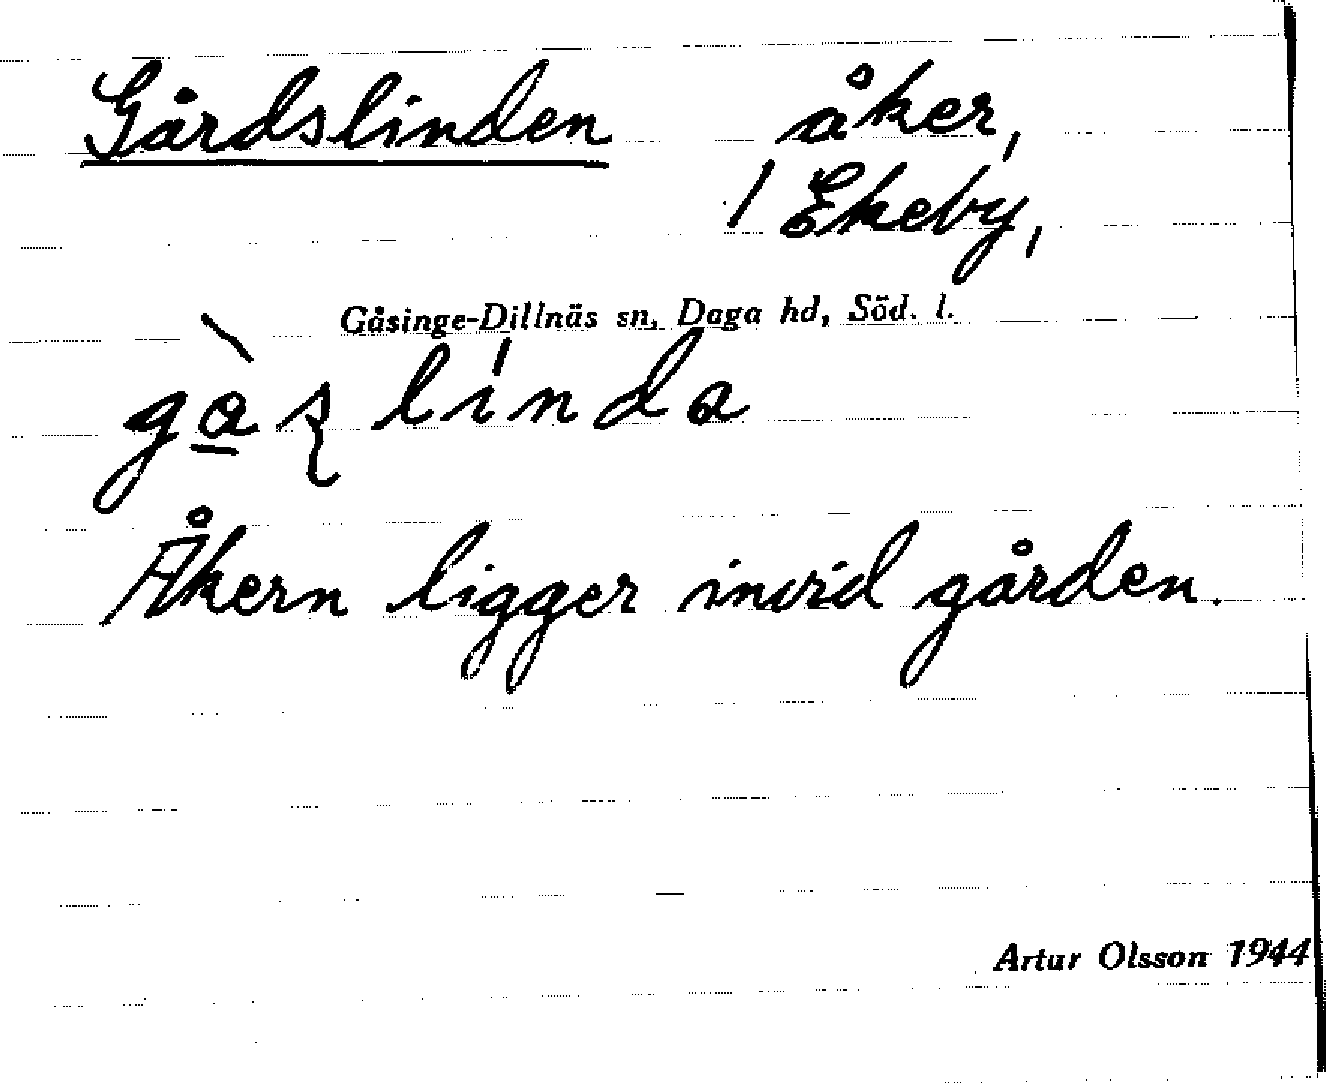 Gårdslinden åker,
/ Ekeby,
Gåsinge-Dillnäs sn, Daga hd, Söd. l.
gàʂlínda
Åkern ligger invid gården.
Artur Olsson 1944